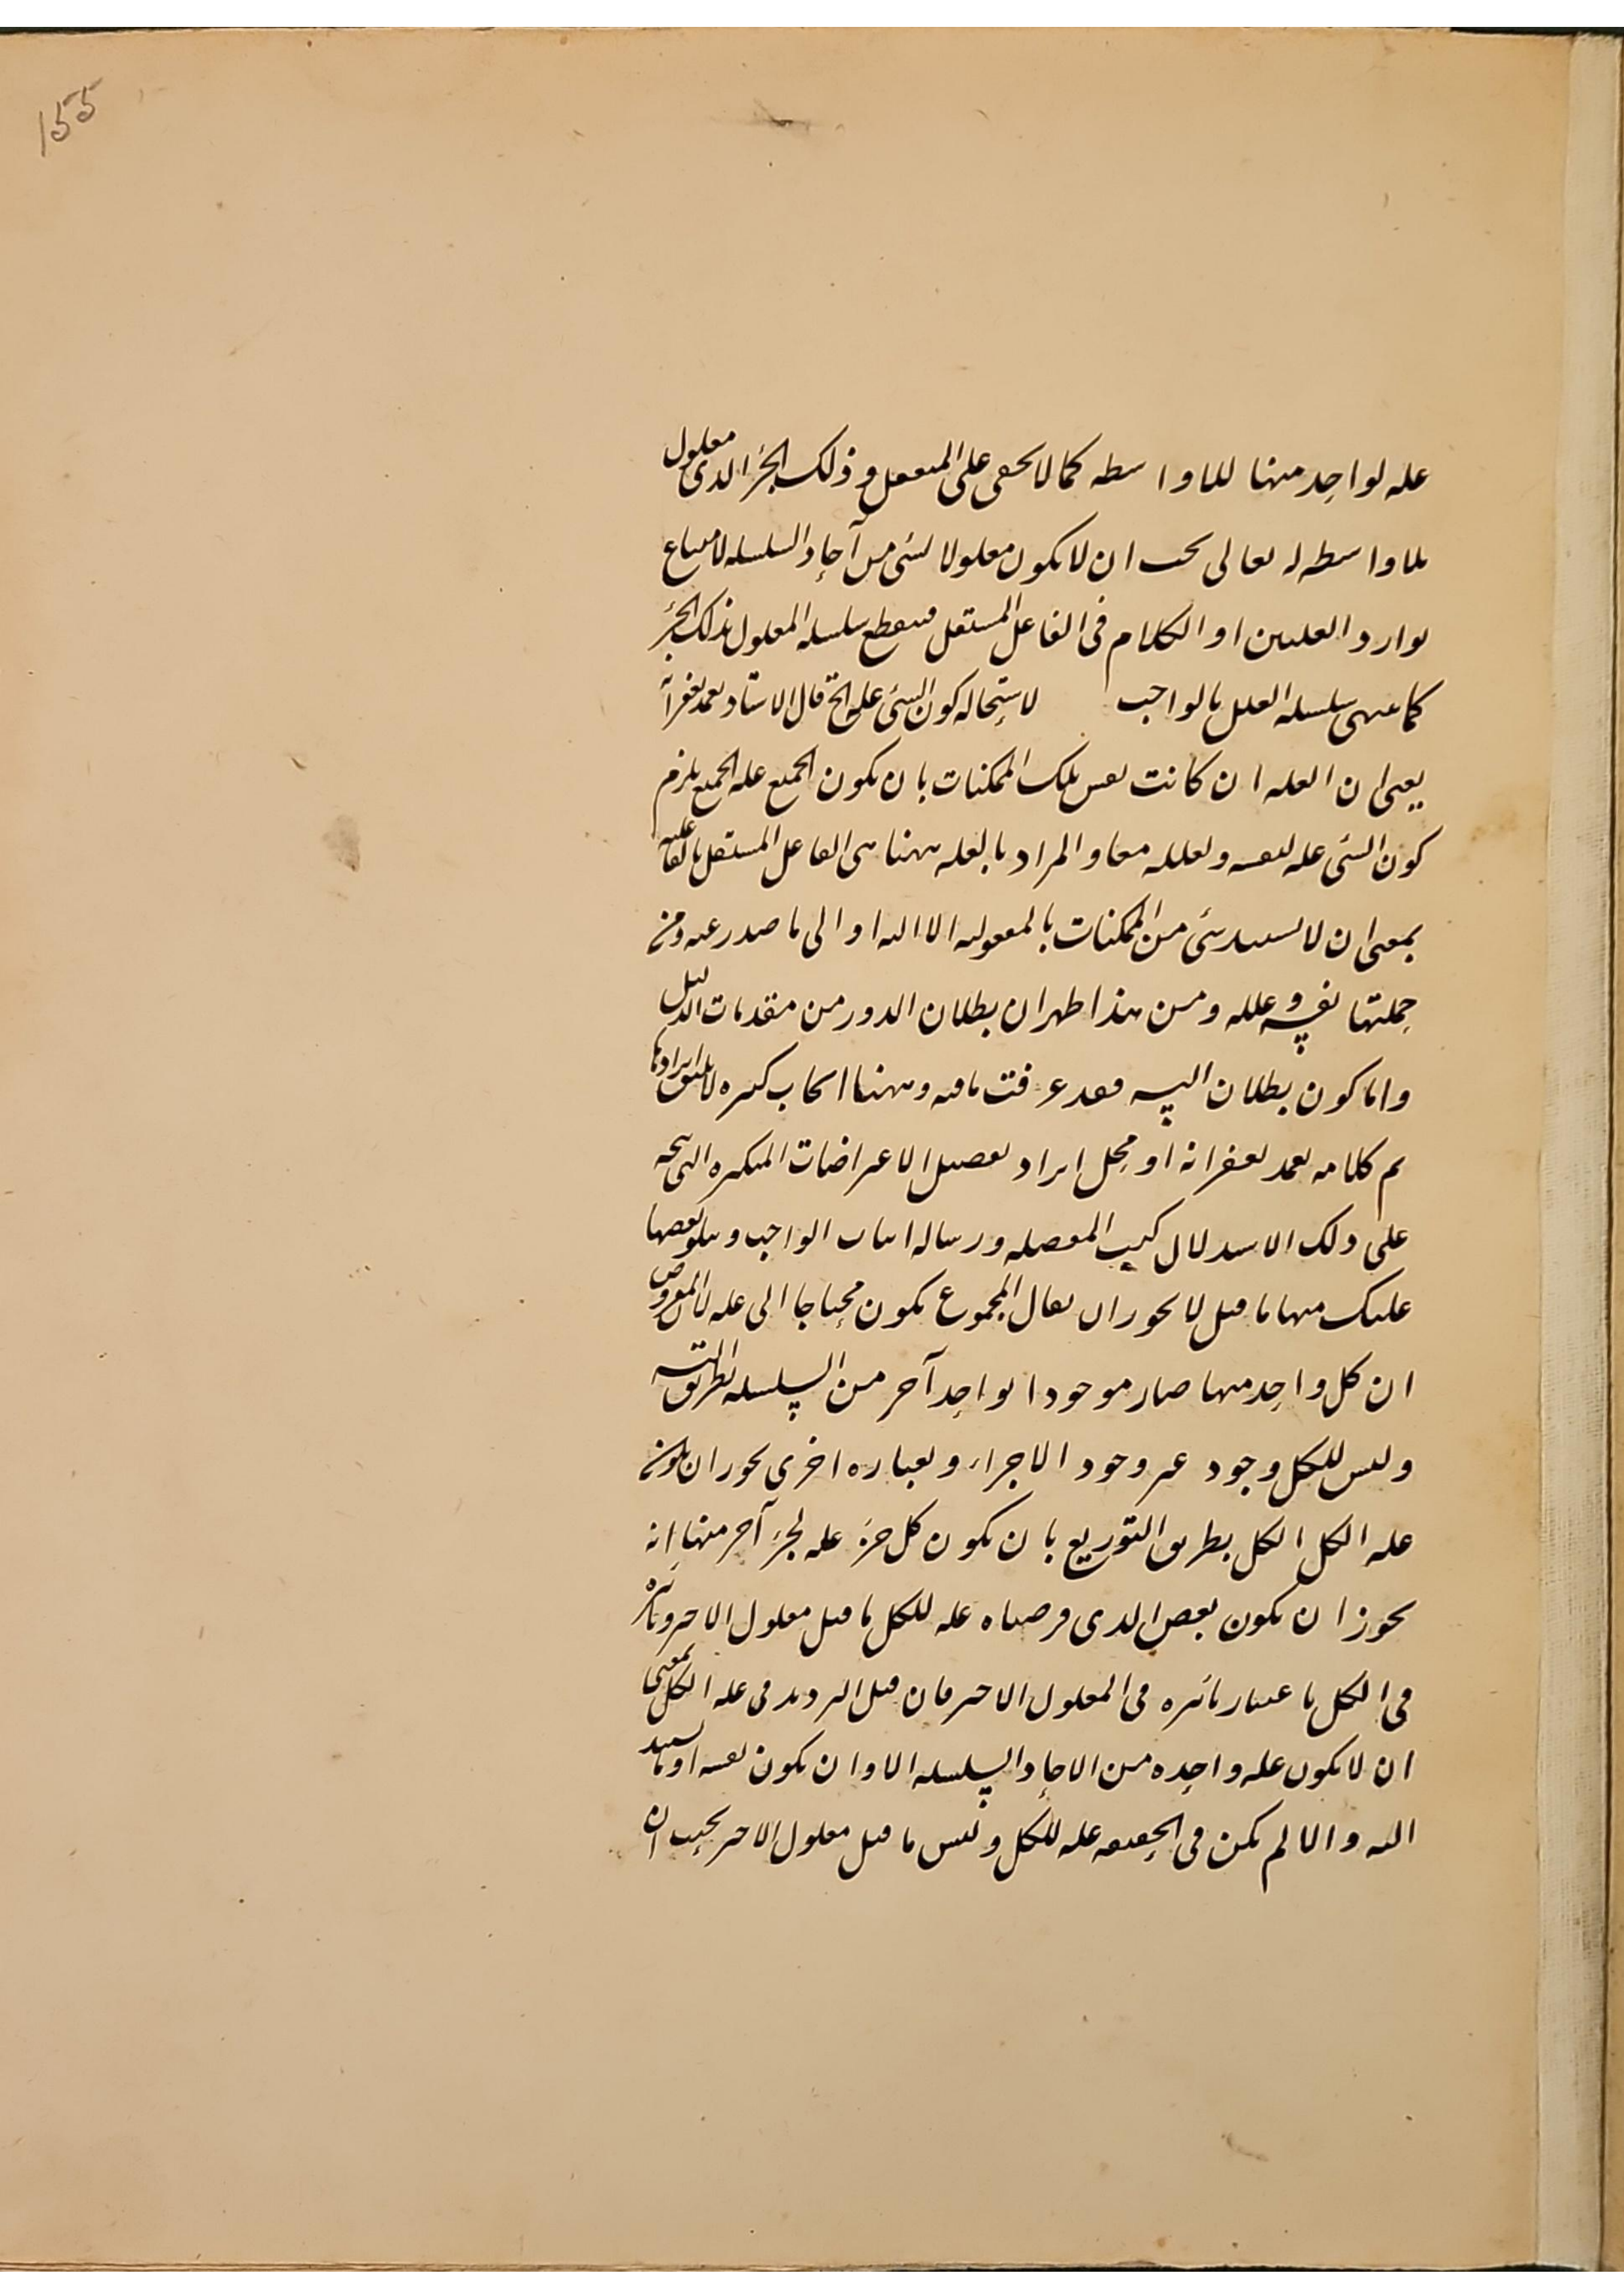 155
علة لواحد منها بلا واسطه كما لا يخفى على المتعقل و ذلك الجزء الذى معلول
بلا واسطه له تعالى يجب ان لا يكون معلولا لشئ من آحاد السلسله لامتناع
توارد العلتين اذ الكلام فى الفاعل المستقل فينقطع سلسله المعلول بذلك الجزء
كما ينتهى سلسله العلل بالواجب لاستحاله كون الشئ علة الخ قال الاستاد تغمد بغفرانه
يعنى ان العله ان كانت نفس تلك الممكنات بان يكون الجميع علة الجميع يلزم
كون الشئ علة لنفسه و لعلله معا و المراد بالعله ههنا هى الفاعل المستقل بالفاعلية
بمعنى ان لا يستند شئ من الممكنات بالمعلوليه الا اليه او الى ما صدر عنه و من
جملتها نفسه و علله و من هذا ظهر ان بطلان الدور من مقدمات الدليل
و اما كون بطلان التسـ فقد عرفت ما فيه و ههنا ابحاث كثيره لا يليق ايرادها
تم كلامه تغمد بغفرانه اذ محل ايراد تفصيل الاعتراضات المتكثره التى تتجه
على ذلك الاستدلال كتب المفصله و رساله اثبات الواجب و نتلو بعضها
عليك منها ما قيل لا يجوز ان يقال المجموع يكون محتاجا الى علة لان المفروض
ان كل واحد منها صار موجودا بواحد آخر من السلسله بطريق التسـ
و ليس للكل وجود غير وجود الاجزاء و بعباره اخرى يجوز ان يكون
علة الكل الكل بطريق التوزيع بان يكون كل جزء علة لجزء آخر منها انه
يجوز ان يكون بعض الذى فرضناه علة للكل ما قبل معلول الاخير و تاثيره
فى الكل باعتبار تاثيره فى المعلول الاخير فان قيل الترديد فى علة الكل بمعنى
ان لا يكون علة واحدة من الاحاد السلسله الا و ان يكون نفسه او ما يستند
اليه و الا لم يكن فى الحقيقه علة للكل و ليس ما قبل معلول الاخير بحيث ان